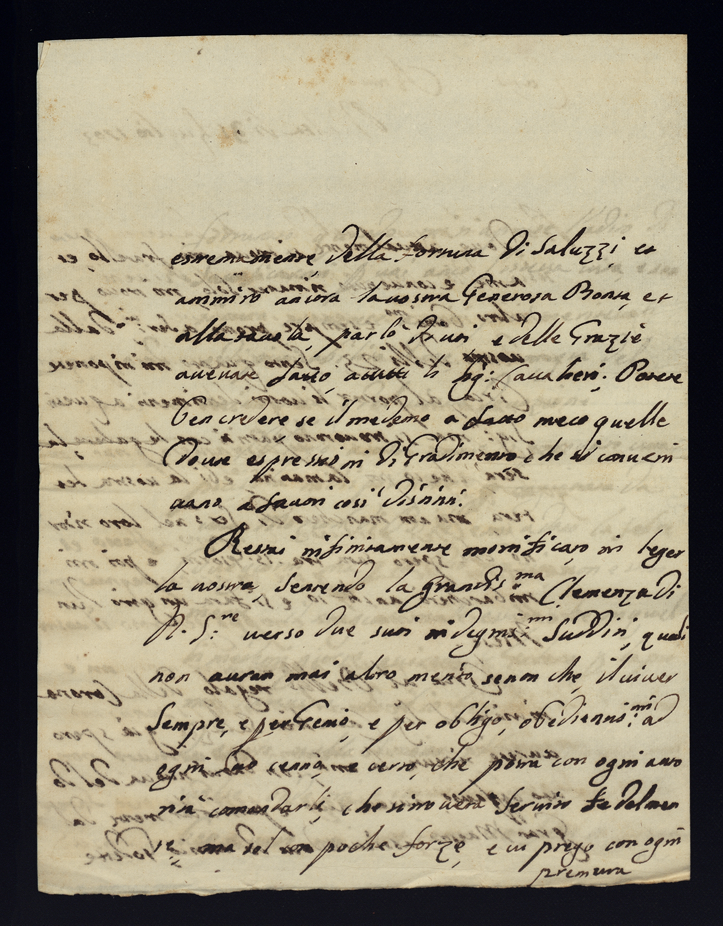 estremamente della fortuna di Saluzzi et
ammiro ancora la vostra Generosa Bontà, et
alta per lo e delle Grazie
avevate fatto a tutti li Sig.i Cavalieri. Potete
ben credere se il medemo a fatto meco quelle
dovute espressioni di Gradimento che si conveni
vano a favori così distinti.
Restai infinitamente mortificato in leger
la vostra, sentendo la grandis.ma Clemenza di
N. S.re verso due suoi indegnis.mi Sudditi, quali
non auran mai altro merito senon che il viver
sempre, e per Genio, e per obligo, obedientis.mi ad
ogni suo cenno, e certo, che potrà con ogni auto
rità comandarli, che si trouerà seruito fedelmen
te, ma sol con poche forze, e ui prego con ogni
premura